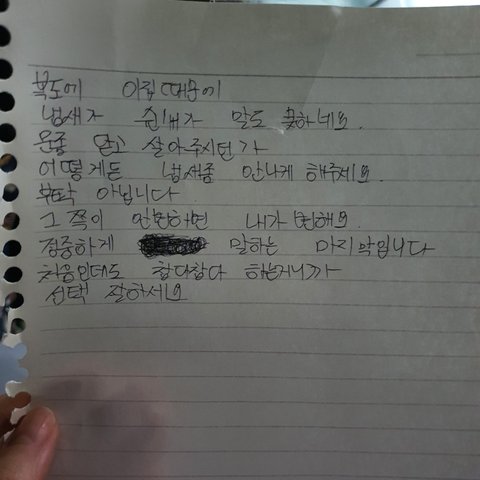 복도에 이집때문에
냄새가 쉰내가 말도 못하네요.
문좀 닫고 살아주시던가
어떻게든 냄새좀 안나게 해주세요.
부탁 아닙니다
그 쪽이 안변하면 내가 변해요.
정중하게 말하는 마지막입니다
처음인데도 참다참다 하는거니까
선택 잘하세요